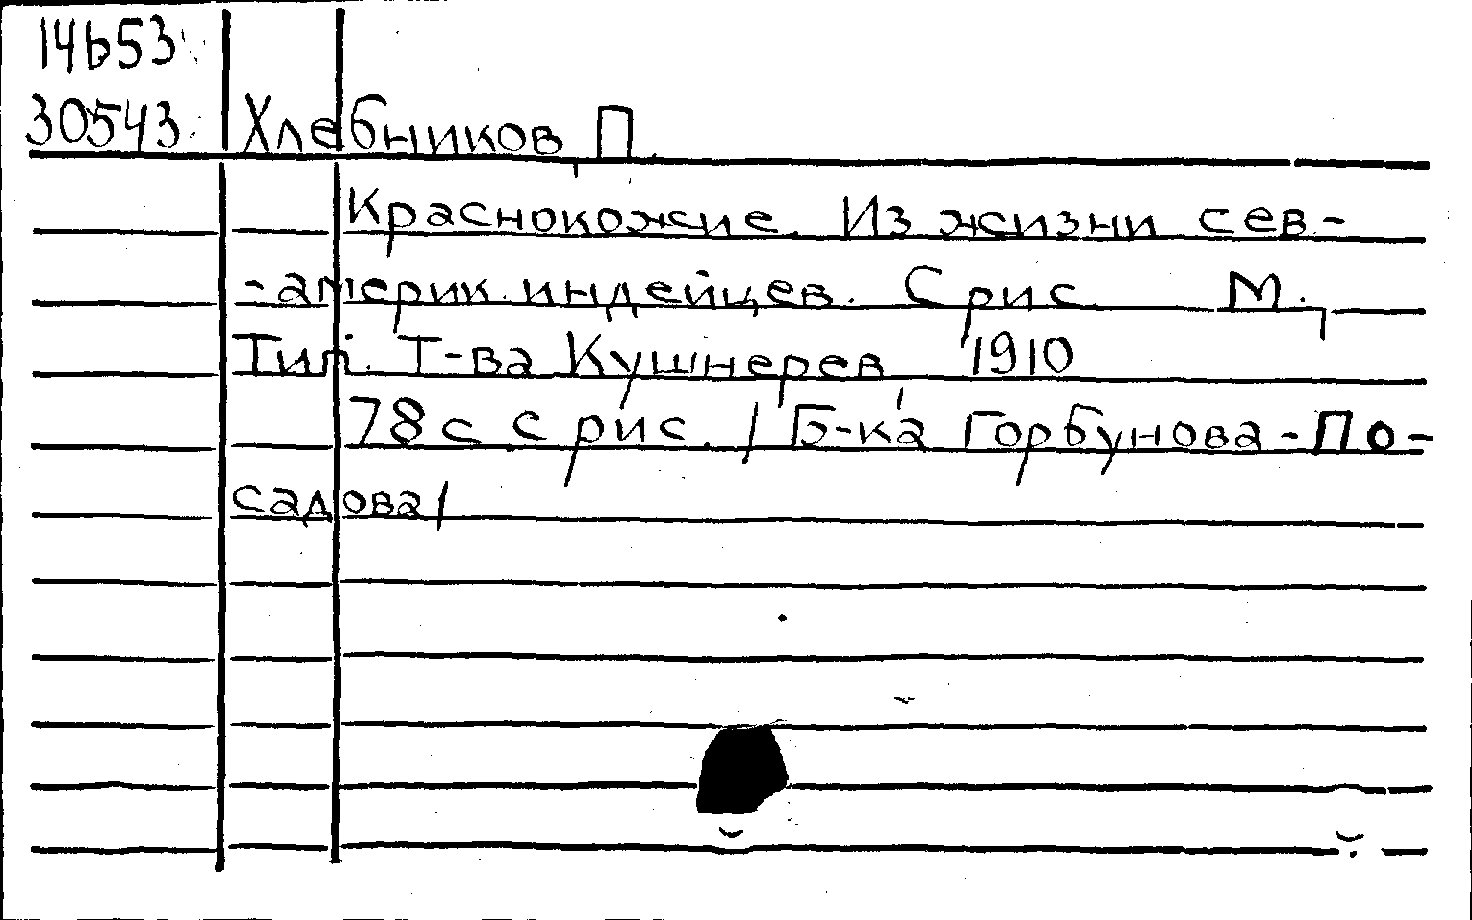 14653
30543. Хлебников, П.
Краснокожие. Из жизни сев-
-америк. индейцев. С рис. М.,
Тип. Т-ва Кушнерев, 1910
78 с с рис. / Б-ка Горбунова-По-
садова/